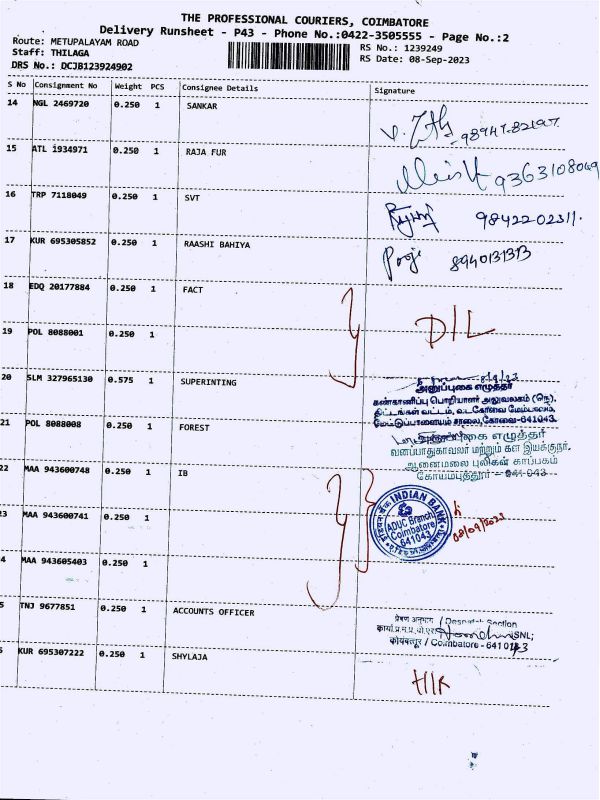 THE PROFESSIONAL COURIERS, COIMBATORE
Delivery Runsheet - P43 - Phone No.:0422-3505555 - Page No.:2
Route: METUPALAYAM ROAD RS No.: 1239249
Staff: THILAGA RS Date: 08-Sep-2023
DRS No.: DCJB123924902
S No Consignment No Weight PCS Consignee Details Signature
14 NGL 2469720 0.250 1 SANKAR
98947-82197
15 ATL 1934971 0.250 1 RAJA FUR
9363108049
16 TRP 7118049 0.250 1 SVT
98422-02311.
17 KUR 695305852 0.250 1 RAASHI BAHIYA
Pooji 8940131313
18 EDQ 20177884 0.250 1 FACT
D/L
19 POL 8088001 0.250 1
20 SLM 327965130 0.575 1 SUPERINTING
அனுப்புகை எழுத்தர்
கண்காணிப்பு பொறியாளர் அலுவலகம் (நெ),
திட்டங்கள் வட்டம், வடகோவை மேம்பாலம்,
மேட்டுப்பாளையம் சாலை, கோவை-641043.
21 POL 8088008 0.250 1 FOREST
எழுத்தர்
வனப்பாதுகாவலர் மற்றும் கள இயக்குநர்,
ஆனைமலை புலிகள் காப்பகம்
கோயம்புத்தூர் - 641 043
22 MAA 943600748 0.250 1 IB
INDIAN BANK
ADUC Branch
Coimbatore
641043
08/09/2023
3 MAA 943600741 0.250 1
4 MAA 943605403 0.250 1
5 TNJ 9677851 0.250 1 ACCOUNTS OFFICER
प्रेषण अनुभाग / Despatch Section
BSNL;
कोयंबत्तूर / Coimbatore - 641 043
KUR 695307222 0.250 1 SHYLAJA
H/R